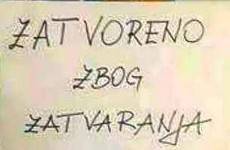 ZATVORENO
ZBOG
ZATVARANJA